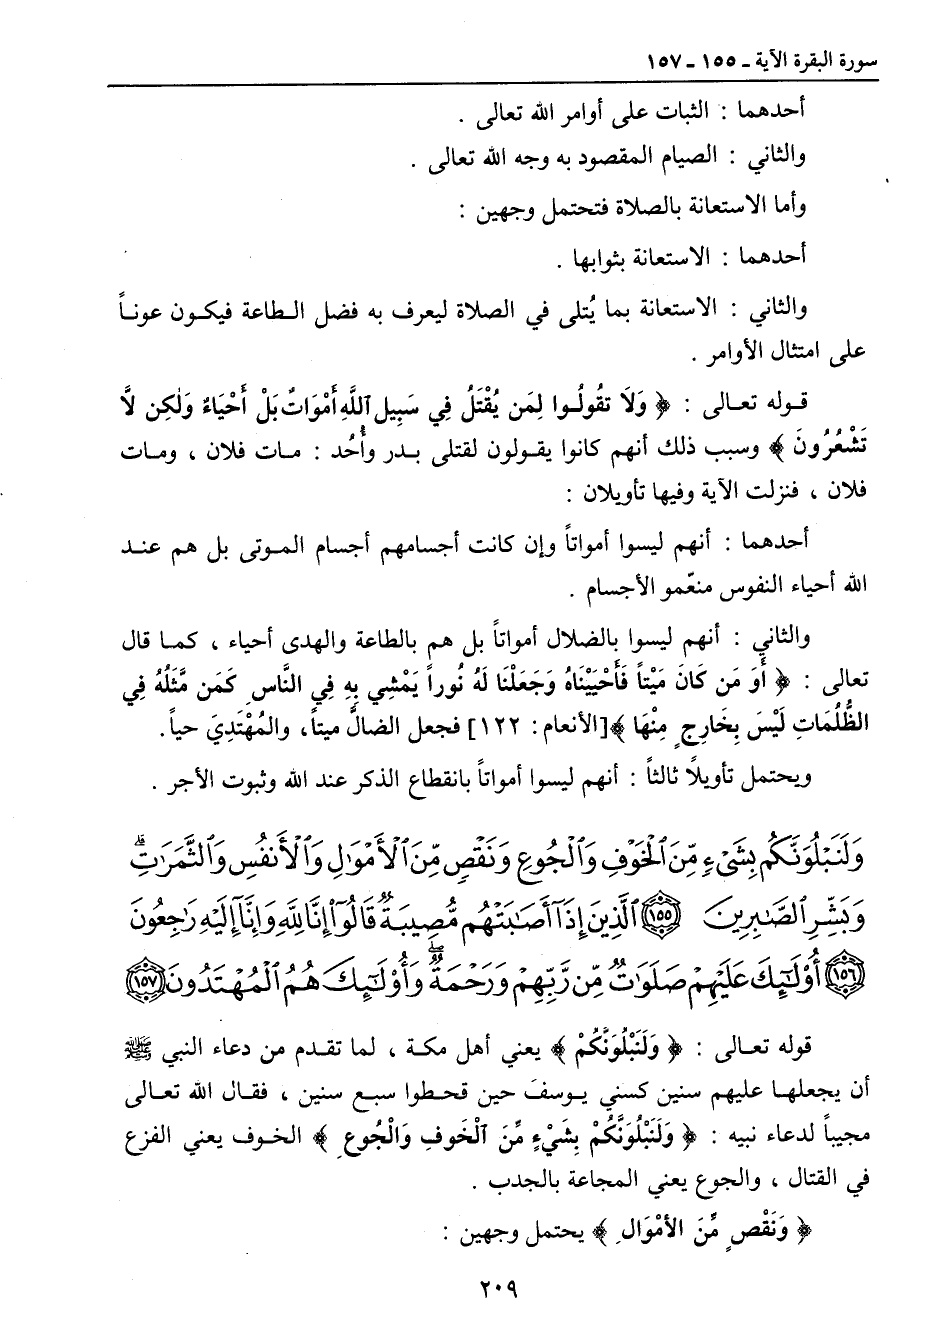 سورة البقرة الآية ـ ١٥٥ ـ ١٥٧
أحدهما : الثبات على أوامر الله تعالى .
والثاني : الصيام المقصود به وجه الله تعالى .
وأما الاستعانة بالصلاة فتحتمل وجهين :
أحدهما : الاستعانة بثوابها .
والثاني : الاستعانة بما يُتلى في الصلاة ليعرف به فضل الـطاعة فيكـون عونـاً
على امتثال الأوامر .
قـوله تعـالى : ﴿ وَلَا تقُولُـوا لِمَن يُقْتَلُ فِي سَبِيلِ ٱللَّهِ أَمْوَاتٌ بَلْ أَحْيَاءٌ وَلَكِن لَّا
تَشْعُرُونَ ﴾ وسبب ذلك أنهم كانوا يقـولون لقتلى بـدر وأُحد : مـات فلان ، ومـات
فلان ، فنزلت الآية وفيها تأويلان :
أحدهما : أنهم ليسوا أمواتاً وإن كانت أجسامهم أجسام المـوتى بل هم عنـد
الله أحياء النفوس منعّمو الأجسام .
والثاني : أنهم ليسوا بالضلال أمواتاً بل هم بالطاعة والهدى أحياء ، كمـا قال
تعالى : ﴿ أَوَ مَن كَانَ مَيْتاً فَأَحْيَيْنَاهُ وَجَعَلْنَا لَهُ نُوراً يَمْشِي بِهِ فِي النَّاسِ كَمَن مَّثَلُهُ فِي
الظُّلُمَاتِ لَيْسَ بِخَارِجٍ مِنْهَا ﴾ [الأنعام: ١٢٢] فجعل الضالَّ ميتاً، والمُهْتَدِيَ حياً.
ويحتمل تأويلاً ثالثاً : أنهم ليسوا أمواتاً بانقطاع الذكر عند الله وثبوت الأجر .
وَلَنَبْلُوَنَّكُم بِشَىْءٍ مِّنَ ٱلْخَوْفِ وَٱلْجُوعِ وَنَقْصٍ مِّنَ ٱلْأَمْوَٰلِ وَٱلْأَنفُسِ وَٱلثَّمَرَٰتِ ۗ
وَبَشِّرِ ٱلصَّٰبِرِينَ ١٥٥ ٱلَّذِينَ إِذَآ أَصَٰبَتْهُم مُّصِيبَةٌ قَالُوٓا۟ إِنَّا لِلَّهِ وَإِنَّآ إِلَيْهِ رَٰجِعُونَ
١٥٦ أُو۟لَٰٓئِكَ عَلَيْهِمْ صَلَوَٰتٌ مِّن رَّبِّهِمْ وَرَحْمَةٌ ۖ وَأُو۟لَٰٓئِكَ هُمُ ٱلْمُهْتَدُونَ ١٥٧
قوله تعـالى : ﴿ وَلَنَبْلُوَنَّكُمْ ﴾ يعني أهل مكة ، لما تقدم من دعاء النبي ﷺ
أن يجعلهـا عليهم سنين كسني يـوسفَ حين قحطـوا سبـع سنين ، فقـال الله تعـالى
مجيباً لدعاء نبيه : ﴿ وَلَنَبْلُوَنَّكُمْ بِشَيْءٍ مِّنَ ٱلْخَوفِ وَالْجُوعِ ﴾ الخـوف يعني الفزع
في القتال ، والجوع يعني المجاعة بالجدب .
﴿ وَنَقْصٍ مِّنَ الأمْوَالِ ﴾ يحتمل وجهين :
٢٠٩